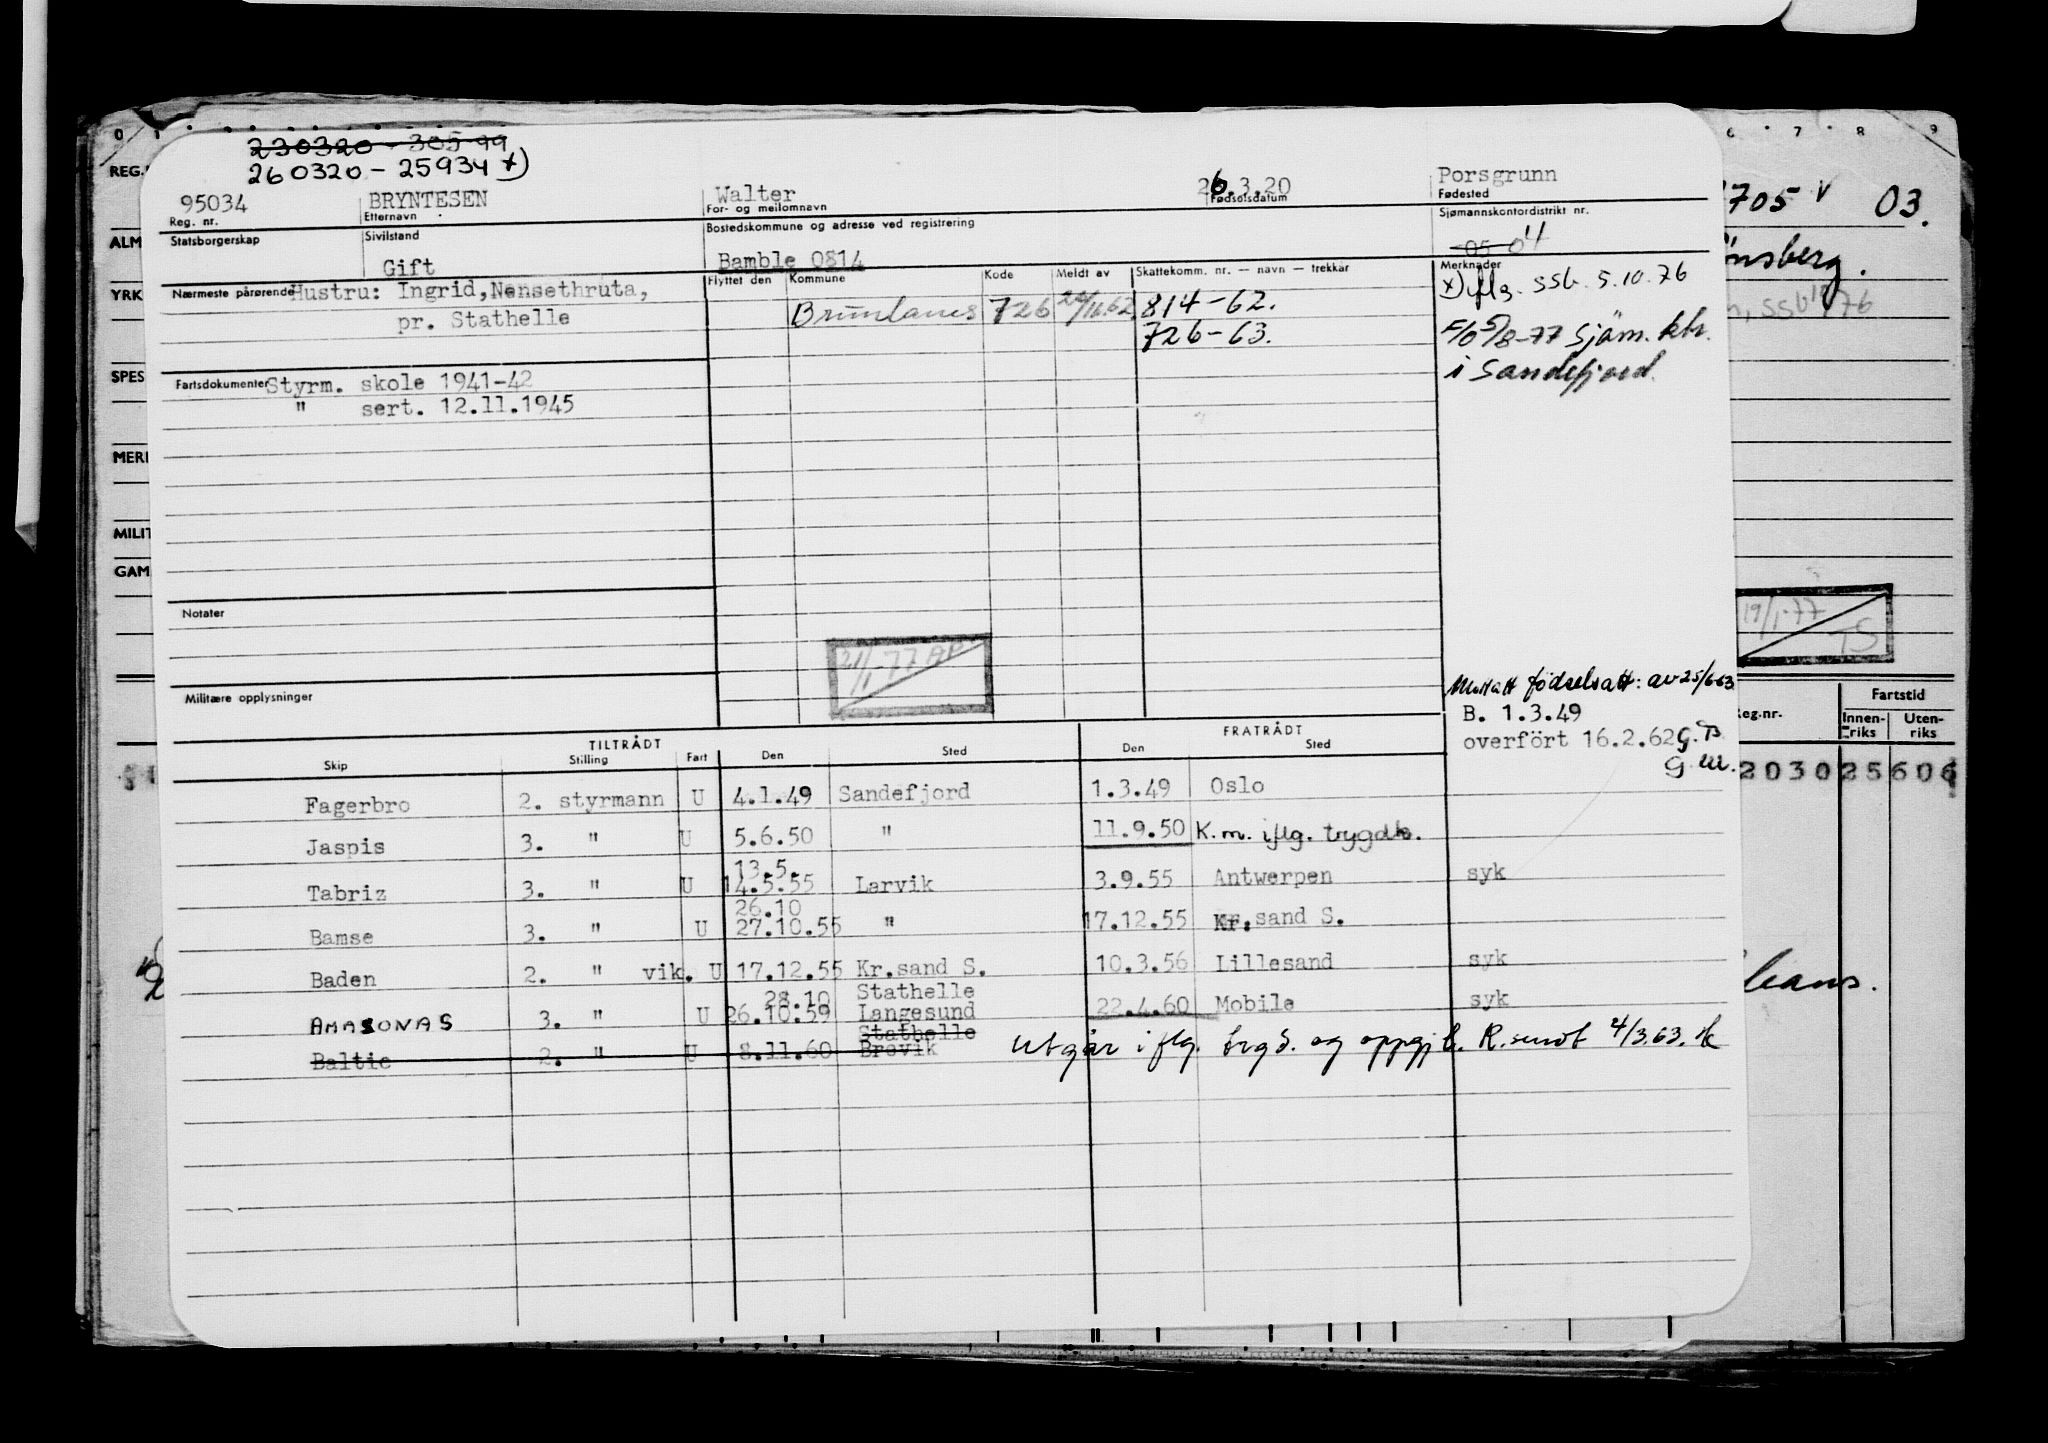 230320 - 305 99
260320 - 25934 x)
95034 BRYNTESEN Walter 26.3.20 Porsgrunn
Reg. nr. Etternavn For- og mellomnavn Fødselsdatum Fødested
Statsborgerskap Sivilstand Bostedskommune og adresse ved registrering Sjømannskontordistrikt nr.
Gift Bamble 0814 05 04
Nærmeste pårørende Flyttet den Kommune Kode Meldt av Skattekomm. nr. — navn — trekkår Merknader
Hustru: Ingrid, Nensethruta, Brunlanes 726 62 814-62. x) iflg. SSb. 5.10.76
pr. Stathelle 726-63. F/o 5/8-77 Sjøm. ktr.
i Sandefjord.
Fartsdokumenter Styrm. skole 1941-42
" sert. 12.11.1945
Notater
21/1-77
Militære opplysninger
Mottatt fødselsatt: av 25/6 63
B. 1.3.49
overført 16.2.62 G.B.
G.M.
TILTRÅDT FRATRÅDT
Skip Stilling Fart Den Sted Den Sted
Fagerbro 2. styrmann U 4.1.49 Sandefjord 1.3.49 Oslo
Jaspis 3. " U 5.6.50 " 11.9.50 K.m. iflg. trygdk.
13.5.
Tabriz 3. " U 14.5.55 Larvik 3.9.55 Antwerpen syk
26.10
Bamse 3. " U 27.10.55 " 17.12.55 Kr.sand S.
Baden 2. " vik. U 17.12.55 Kr.sand S. 10.3.56 Lillesand syk
28.10 Stathelle
AMASONAS 3. " U 26.10.59 Langesund 22.4.60 Mobile syk
Stathelle
Baltic 2. " U 8.11.60 Brevik Utgår iflg. trgd. og oppgj b. R.sundt 4/3.63.
0 1 6 7 8 9
REG.
ALM
YRK
SPES
MERK
MILIT
GAM
705 v 03.
ønsberg.
ssb 76
19/1-77
TS
Reg.nr. Fartstid
Innen-riks Uten-riks
203025606
leans.